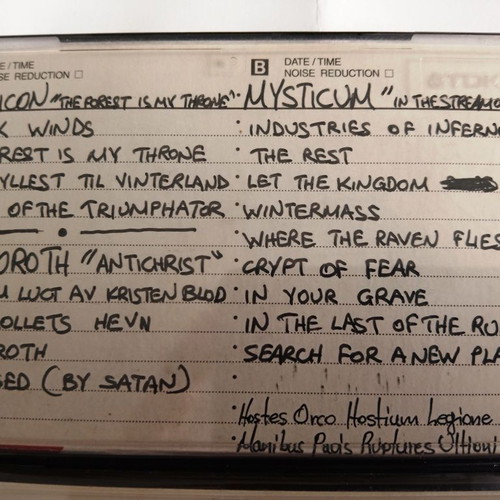 E / TIME
SE REDUCTION
B DATE / TIME
NOISE REDUCTION
ICON "THE FOREST IS MY THRONE"
K WINDS
REST IS MY THRONE
YLLEST TIL VINTERLAND
OF THE TRIUMPHATOR
OROTH "ANTICHRIST"
U LUGT AV KRISTEN BLOD
OLLETS HEVN
ROTH
SED (BY SATAN)
MYSTICUM "IN THE STREAMO
INDUSTRIES OF INFERN
THE REST
LET THE KINGDOM
WINTERMASS
WHERE THE RAVEN FLIES
CRYPT OF FEAR
IN YOUR GRAVE
IN THE LAST OF THE RU
SEARCH FOR A NEW PLA
Hostes Orco Hostium Legione
Manibus Pacis Ruptures Ultioni